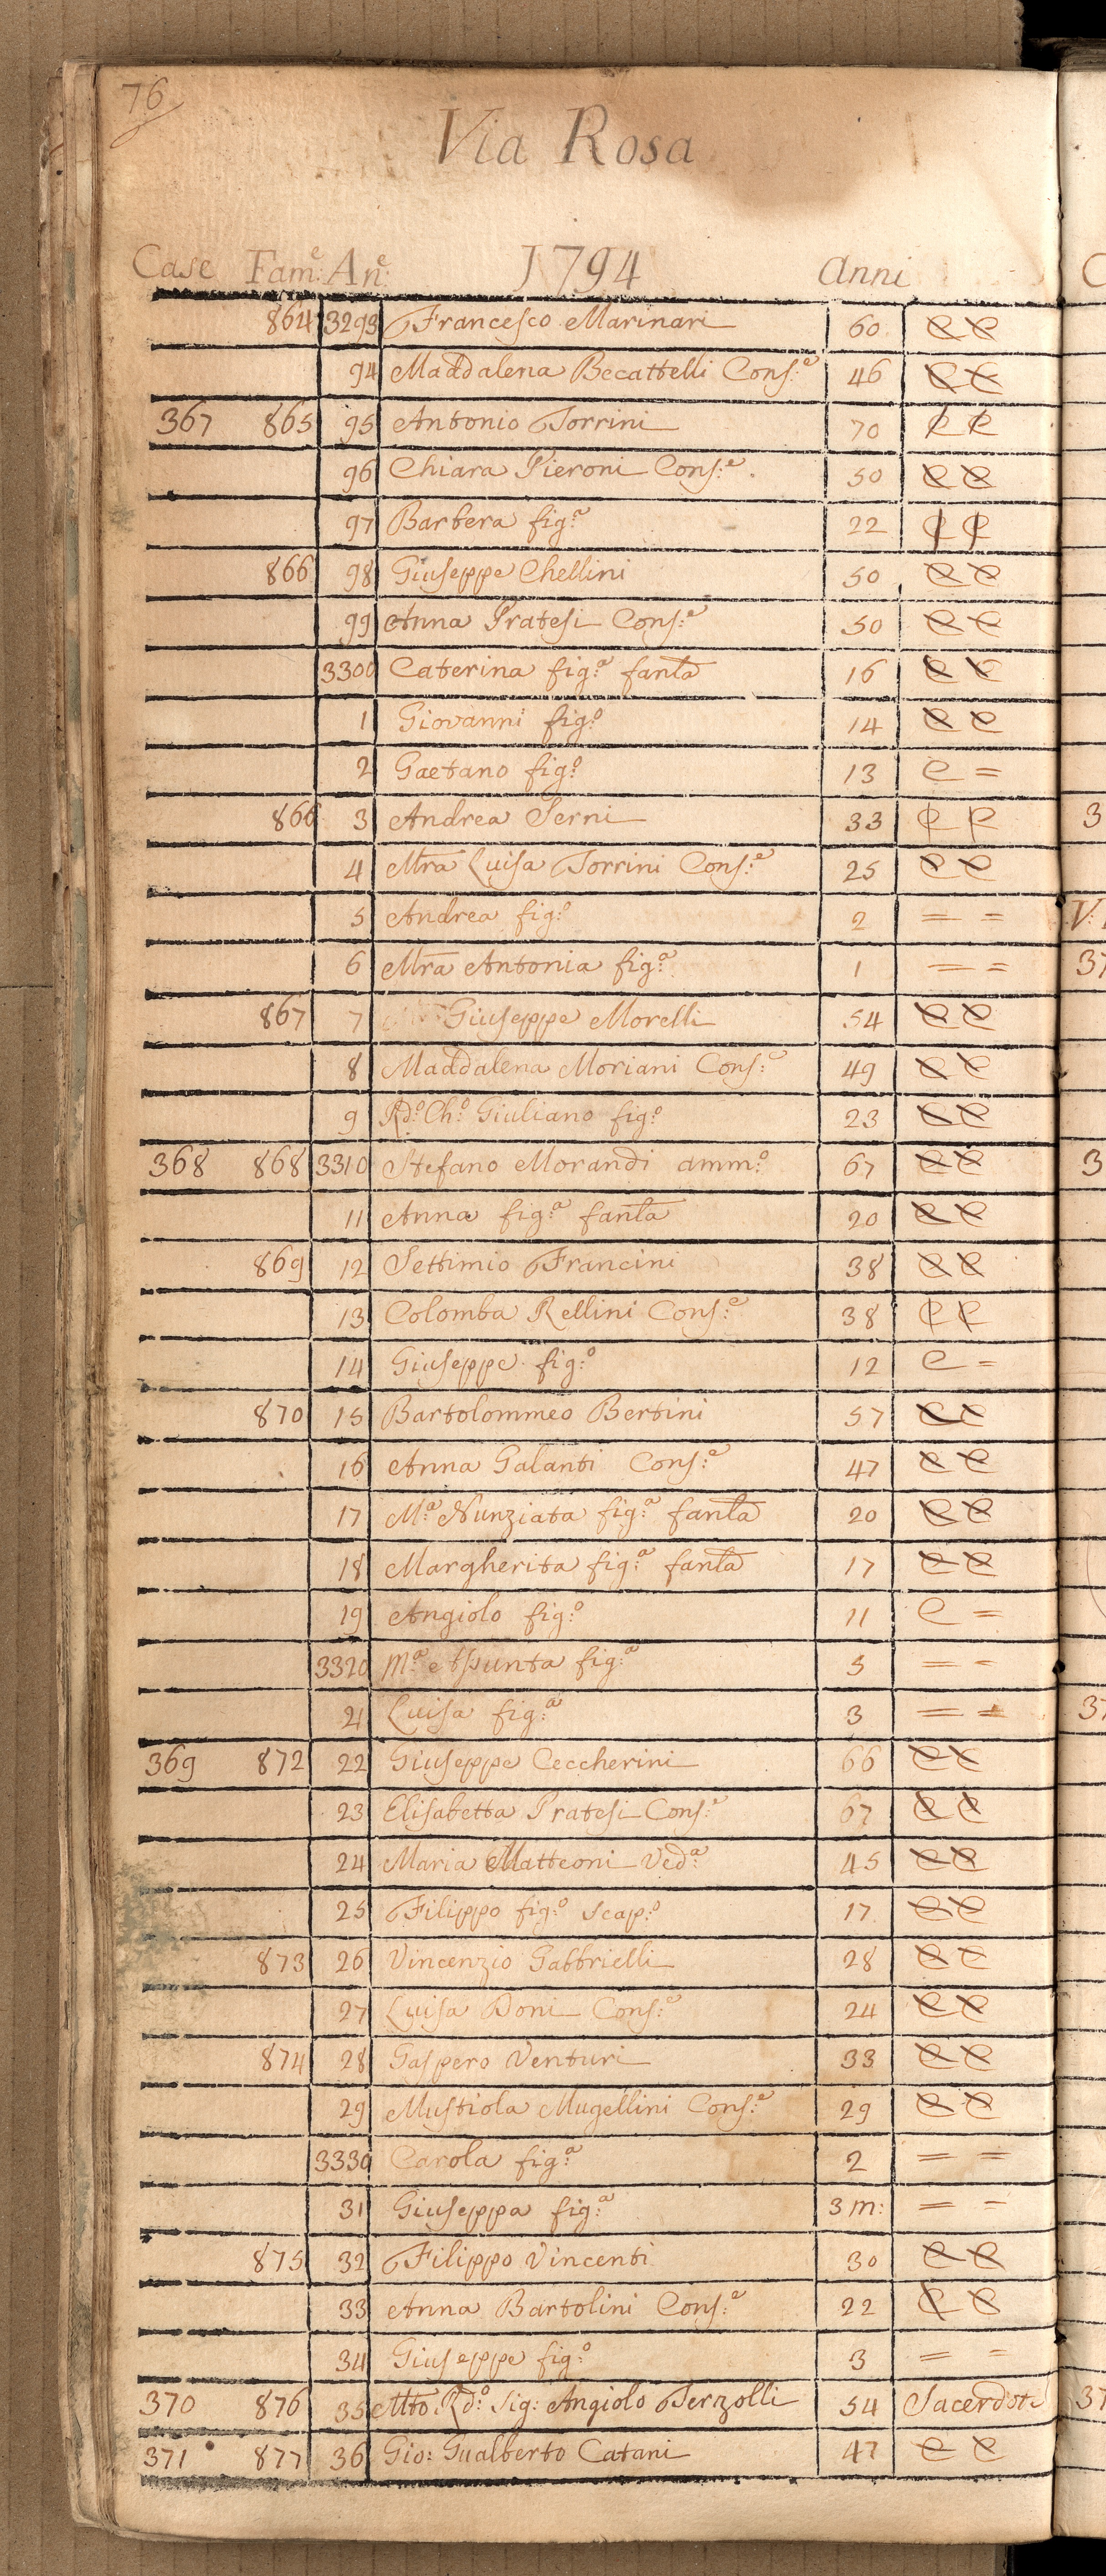 76
Via Rosa
Case Fam:e An:e 1794 Anni
864 3293 Francesco Marinari 60 C C
94 Maddalena Becattelli Cons:e 46 C C
367 865 95 Antonio Torrini 70 C C
96 Chiara Pieroni Cons:e 50 C C
97 Barbera fig:a 22 C C
866 98 Giuseppe Chellini 50 C C
99 Anna Pratesi Cons:e 50 C C
3300 Caterina fig:a fanla 16 C C
1 Giovanni fig:o 14 C C
2 Gaetano fig:o 13 C =
866 3 Andrea Serni 33 C C
4 Mra Luisa Torrini Cons:e 25 C C
5 Andrea fig:o 2 = =
6 Mra Antonia fig:a 1 = =
867 7 Giuseppe Morelli 54 C C
8 Maddalena Moriani Cons:e 49 C C
9 Rd:o Ch:o Giuliano fig:o 23 C C
368 868 3310 Stefano Morandi amm:o 67 C C
11 Anna fig:a fanla 20 C C
869 12 Settimio Francini 38 C C
13 Colomba Rellini Cons:e 38 C C
14 Giuseppe fig:o 12 C =
870 15 Bartolommeo Bertini 57 C C
16 Anna Galanti Cons:e 47 C C
17 M:a Nunziata fig:a fanla 20 C C
18 Margherita fig:a fanla 17 C C
19 Angiolo fig:o 11 C =
3320 M:a Assunta fig:a 5 = =
21 Luisa fig:a 3 = =
369 872 22 Giuseppe Ceccherini 66 C C
23 Elisabetta Pratesi Cons:e 67 C C
24 Maria Matteoni Ved:a 45 C C
25 Filippo fig:o scap:o 17 C C
873 26 Vincenzio Gabbrielli 28 C C
27 Luisa Doni Cons:e 24 C C
874 28 Gaspero Venturi 33 C C
29 Mustiola Mugellini Cons:e 29 C C
3330 Carola fig:a 2 = =
31 Giuseppa fig:a 3 m: = =
875 32 Filippo Vincenti 30 C C
33 Anna Bartolini Cons:e 22 C C
34 Giuseppe fig:o 3 = =
370 876 35 Mto Rd:o Sig: Angiolo Terzolli 54 Sacerdote
371 877 36 Gio: Gualberto Catani 47 C C